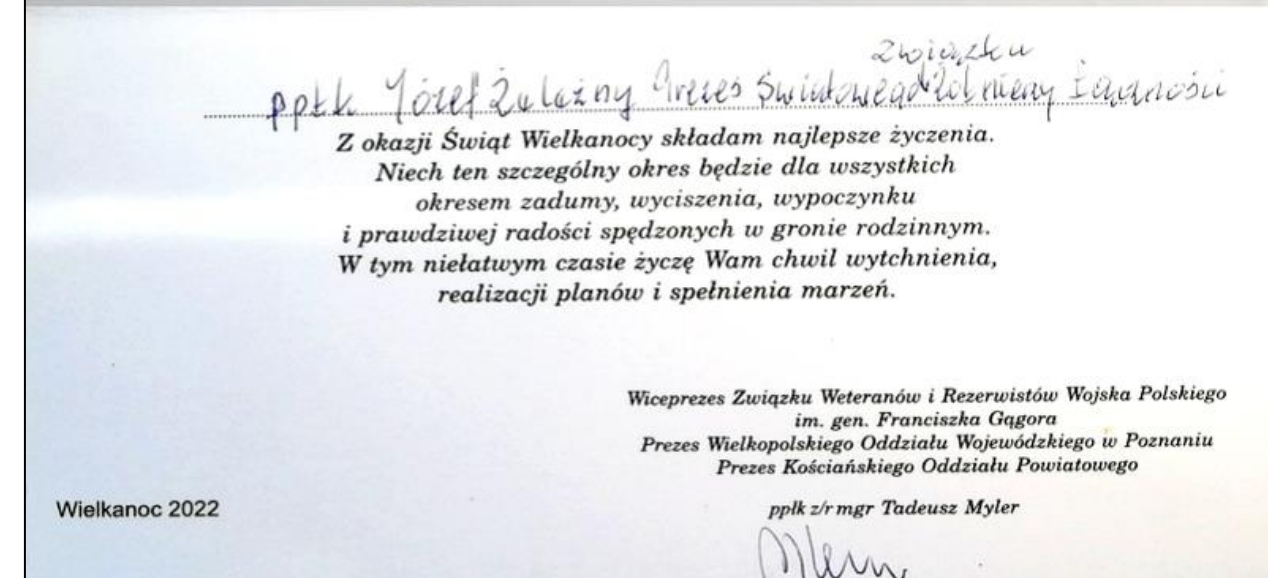 Związku
ppłk Józef Zależny Prezes Światowego Żołnierzy Łączności
Z okazji Świąt Wielkanocy składam najlepsze życzenia.
Niech ten szczególny okres będzie dla wszystkich
okresem zadumy, wyciszenia, wypoczynku
i prawdziwej radości spędzonych w gronie rodzinnym.
W tym niełatwym czasie życzę Wam chwil wytchnienia,
realizacji planów i spełnienia marzeń.
Wiceprezes Związku Weteranów i Rezerwistów Wojska Polskiego
im. gen. Franciszka Gągora
Prezes Wielkopolskiego Oddziału Wojewódzkiego w Poznaniu
Prezes Kościańskiego Oddziału Powiatowego
Wielkanoc 2022
ppłk z/r mgr Tadeusz Myler